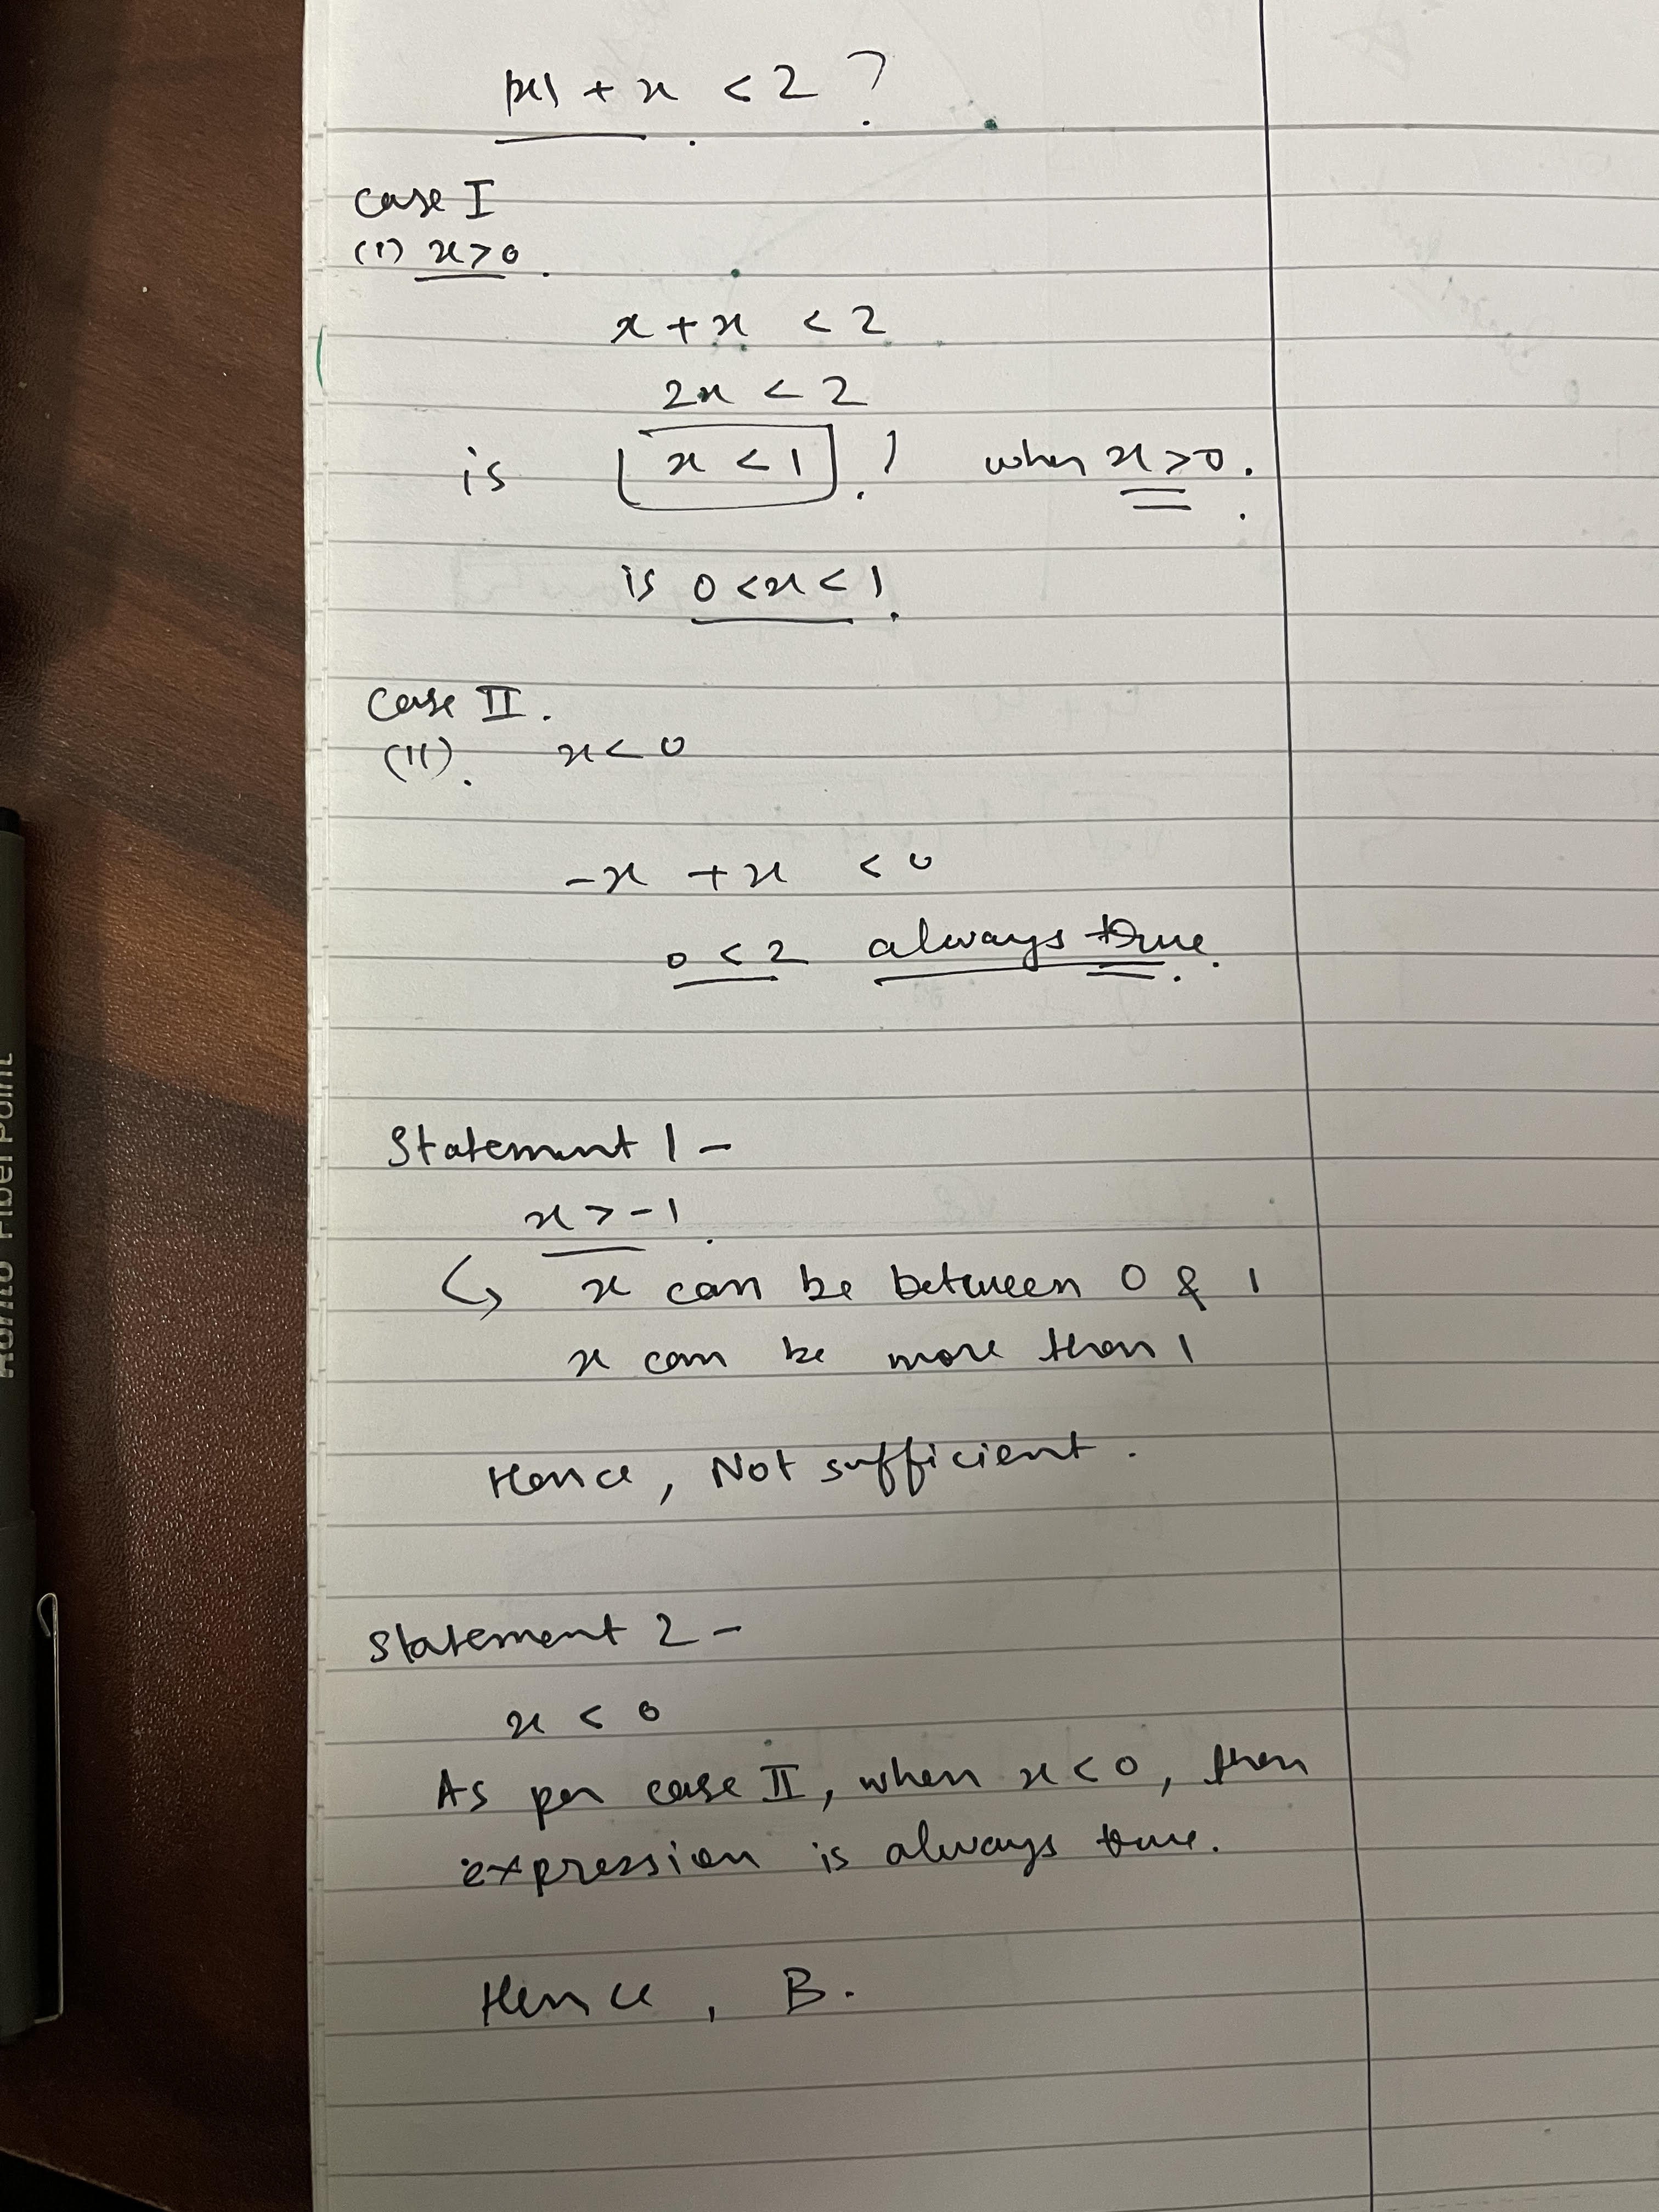 |x| + x < 2 ?
Case I
(I) x>0.
x + x < 2
2x < 2
is x < 1 ? when x>0.
is 0 < x < 1.
Case II.
(II). x < 0
-x + x < 0
0 < 2 always true.
Statement 1 -
x > -1
↳ x can be between 0 & 1
x can be more than 1
Hence, Not sufficient.
Statement 2 -
x < 0
As per case II, when x < 0, then
expression is always true.
Hence, B.
Fiber Point